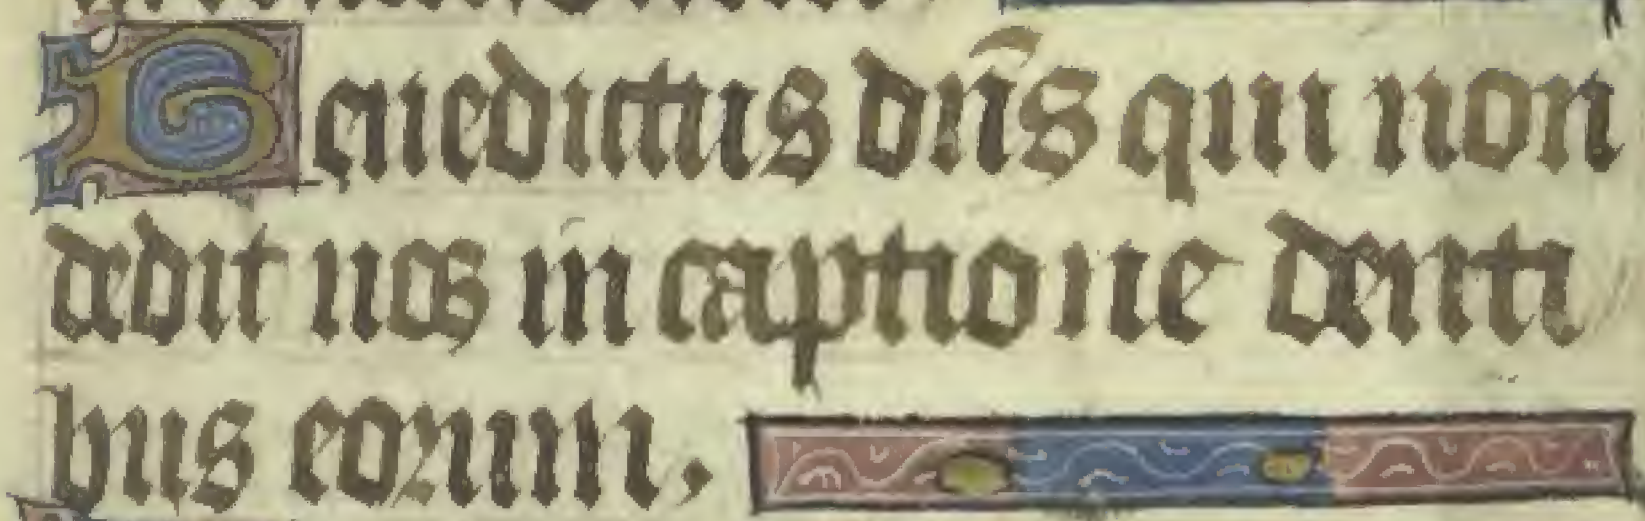 Benedictus dñs qui non
dedit nos in captione denti
bus eorum.